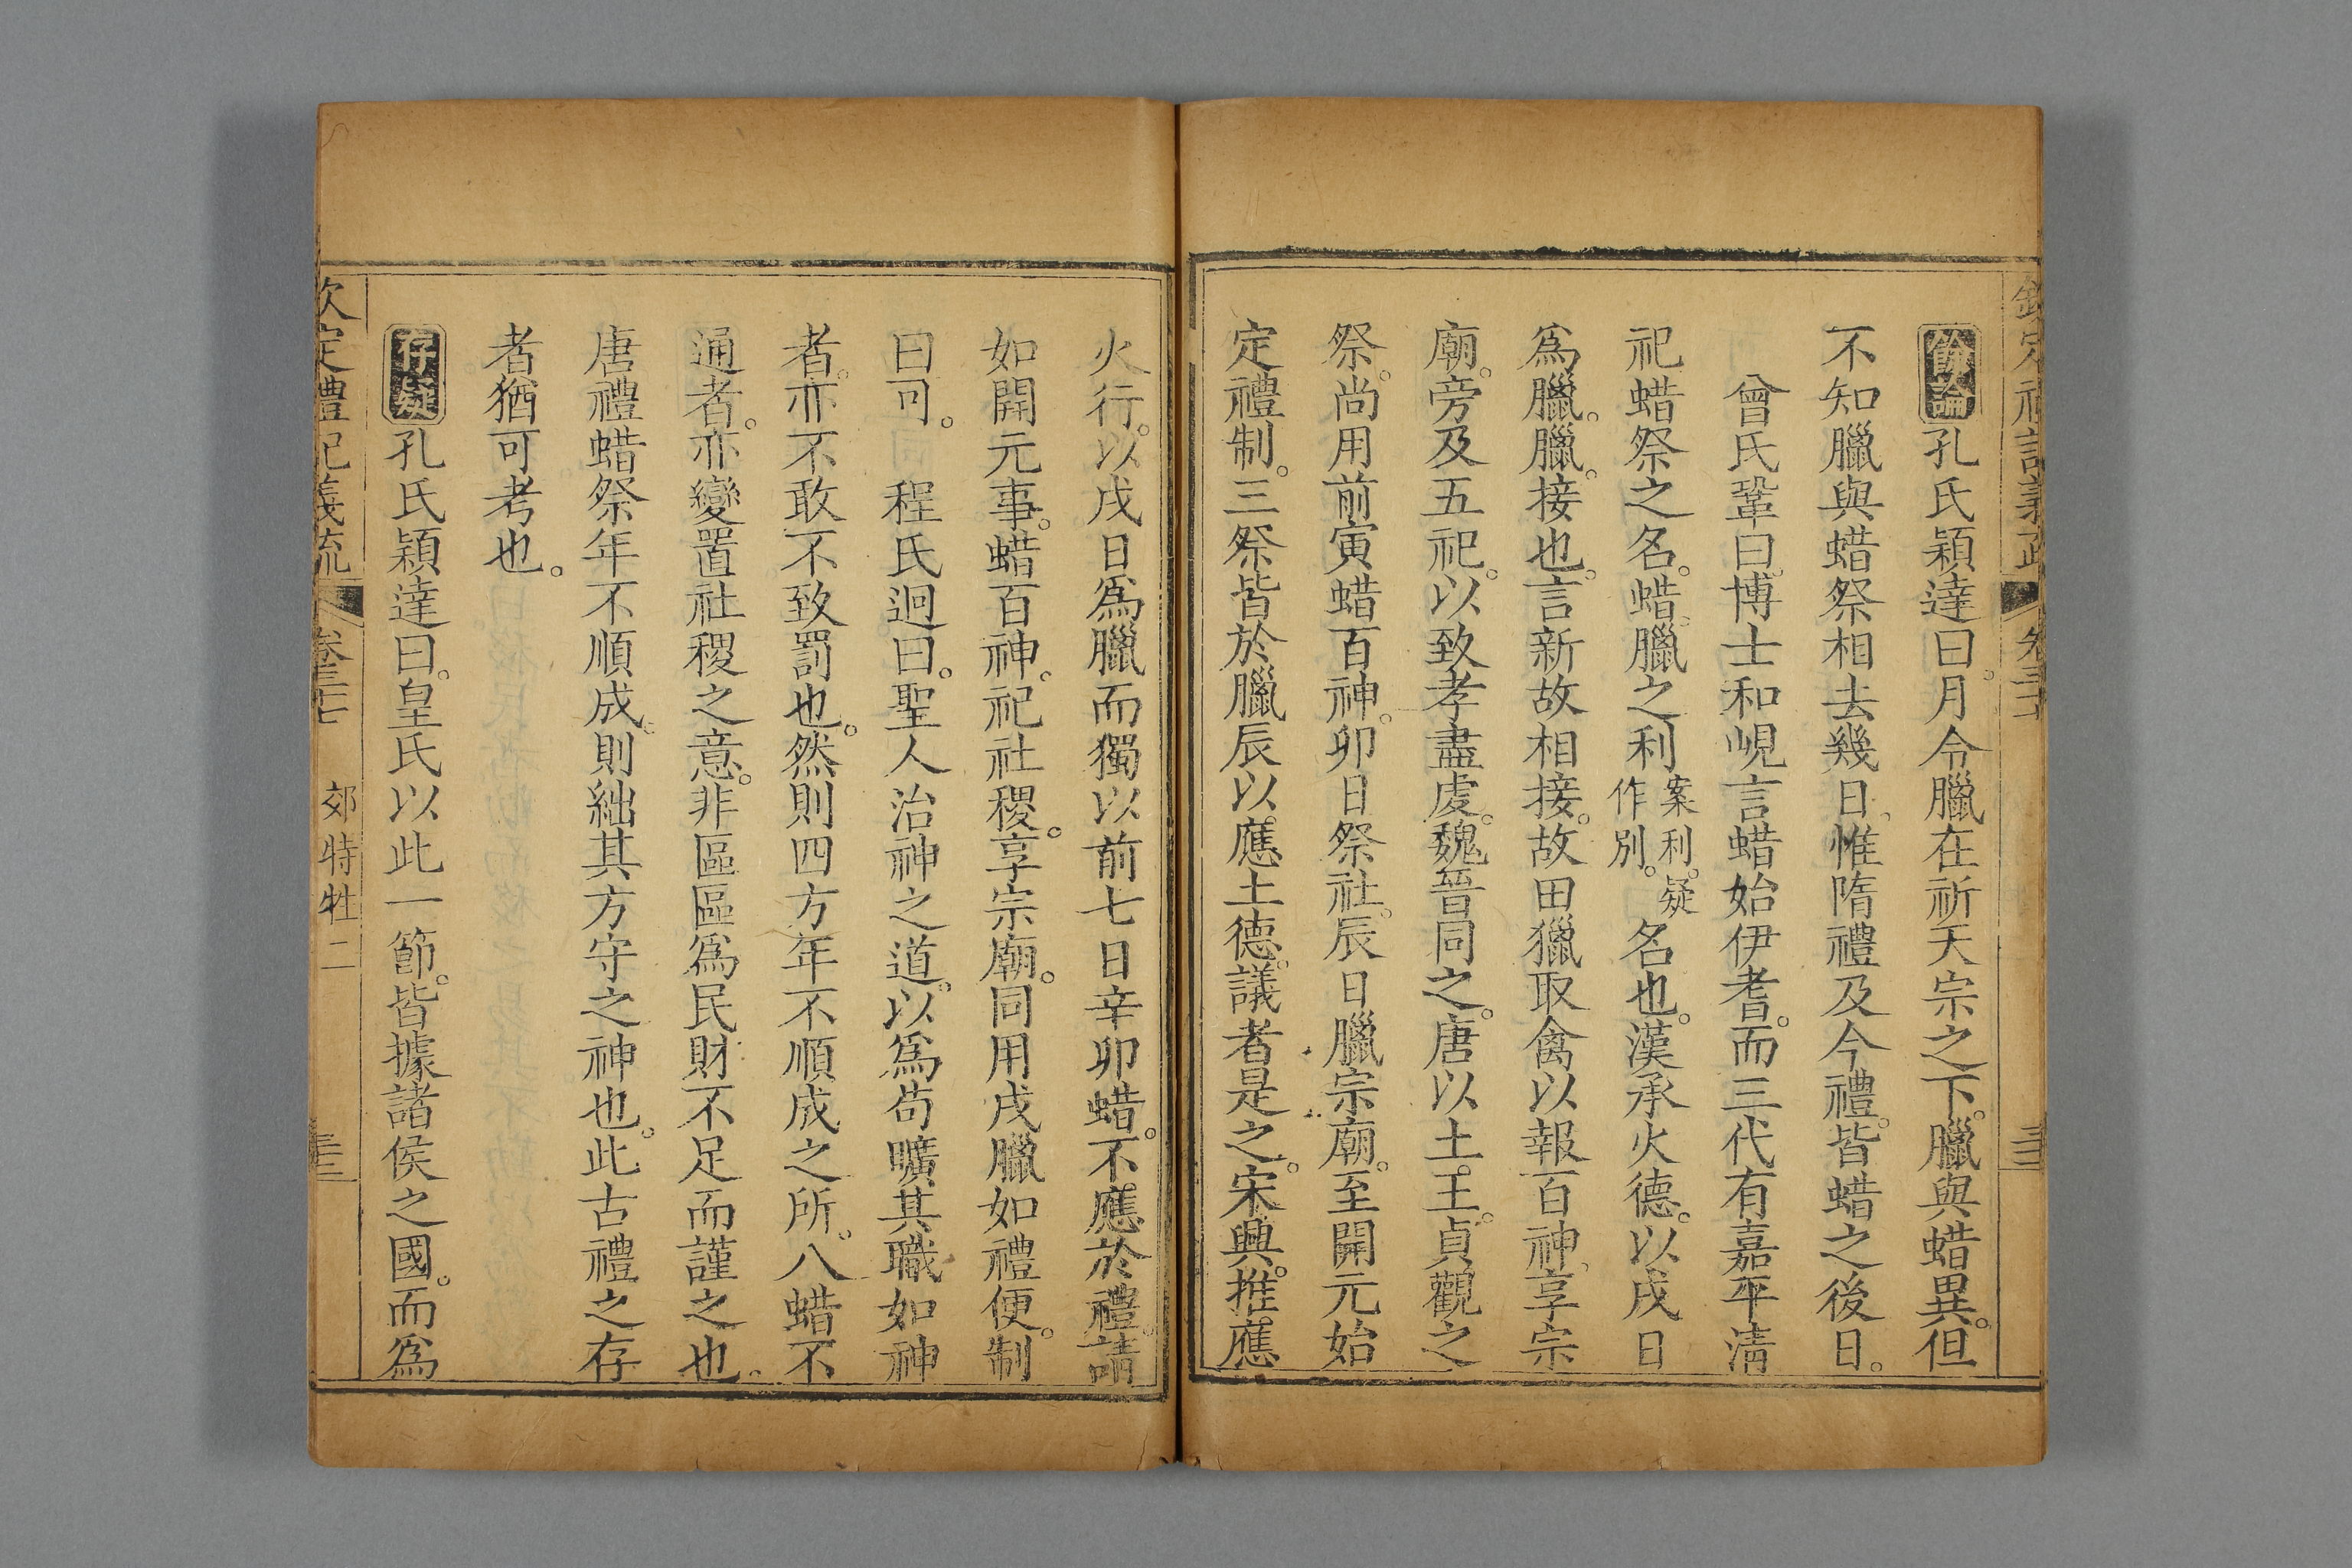 欽定禮記義疏 卷三十七
餘論孔氏穎達曰。月令臘在祈天宗之下。臘與蜡異。但
不知臘與蜡祭相去幾日。惟隋禮及今禮。皆蜡之後日。
曾氏鞏曰。博士和峴言蜡始伊耆。而三代有嘉平淸
祀蜡祭之名。蜡臘之利案利。疑作別。名也。漢承火德。以戌日
爲臘。臘。接也。言新故相接。故田獵取禽以報百神、享宗
廟。旁及五祀。以致孝盡虔。魏晉同之。唐以土王。貞觀之
祭。尚用前寅蜡百神。卯日祭社。辰日臘宗廟。至開元始
定禮制。三祭皆於臘辰以應土德。議者是之。宋興。推應
火行。以戌日爲臘而獨以前七日辛卯蜡。不應於禮。請
如開元事。蜡百神。祀社稷。享宗廟。同用戌臘如禮便。制
曰可。 程氏迥曰。聖人治神之道。以爲苟曠其職如神
者。亦不敢不致罰也。然則四方年不順成之所。八蜡不
通者。亦變置社稷之意。非區區爲民財不足而謹之也。
唐禮蜡祭年不順成。則絀其方守之神也。此古禮之存
者猶可考也。
存疑孔氏穎達曰。皇氏以此一節。皆據諸侯之國。而爲
欽定禮記義疏 卷三十七 郊特牲二